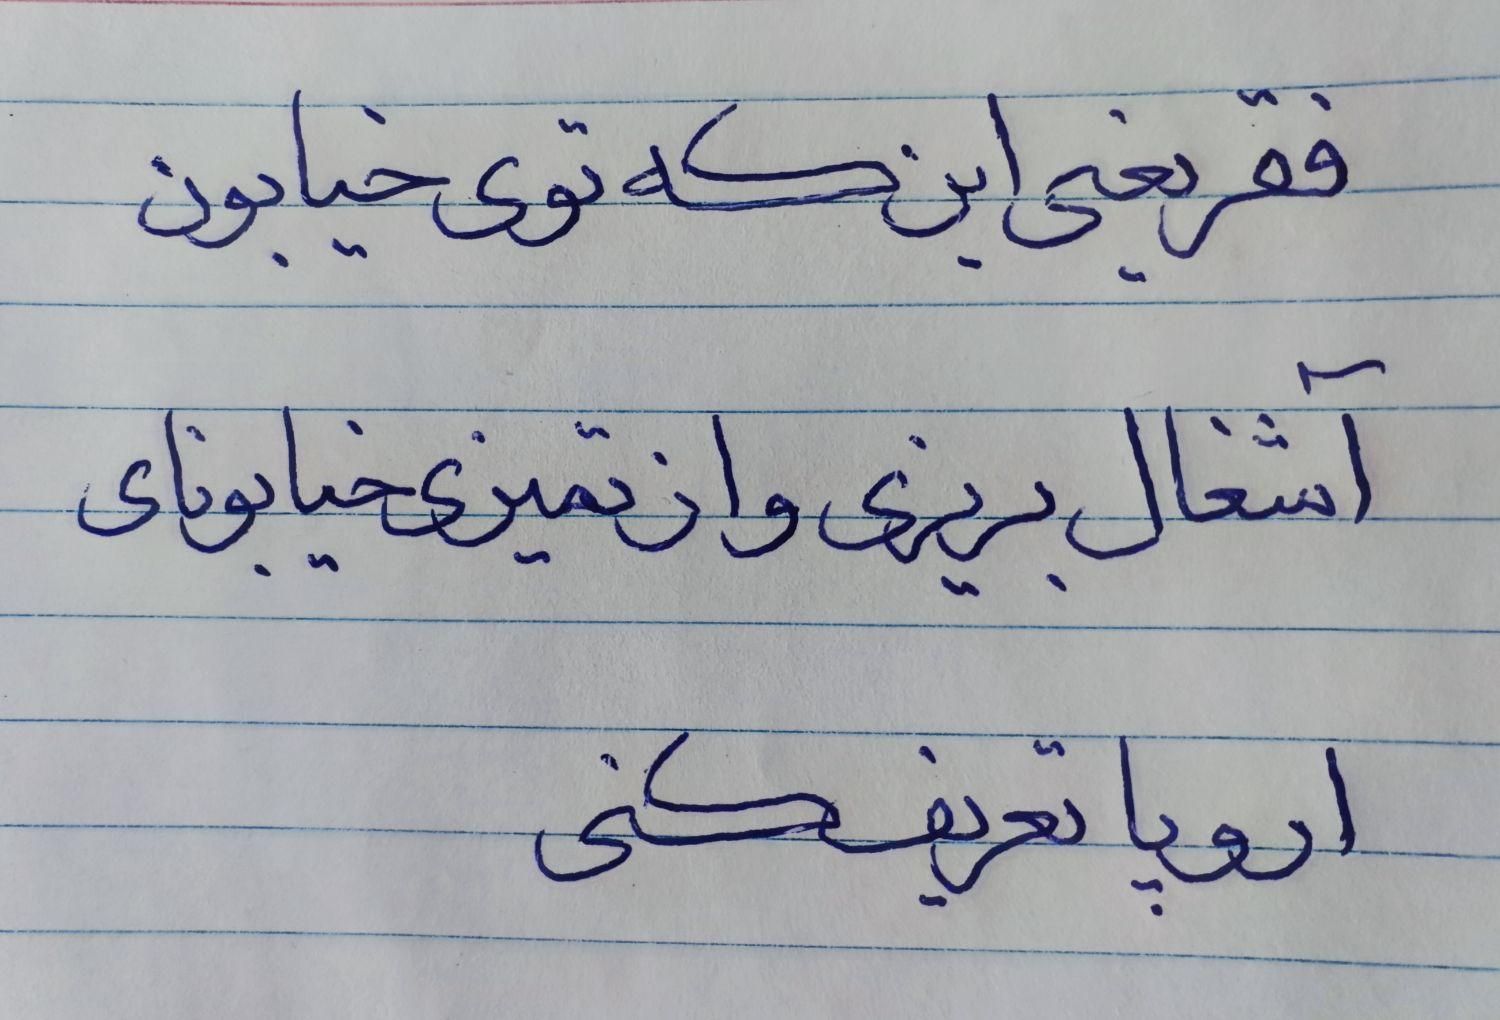 فقر یعنی این که توی خیابون
آشغال بریزی و از تمیزی خیابونای
اروپا تعریف کنی